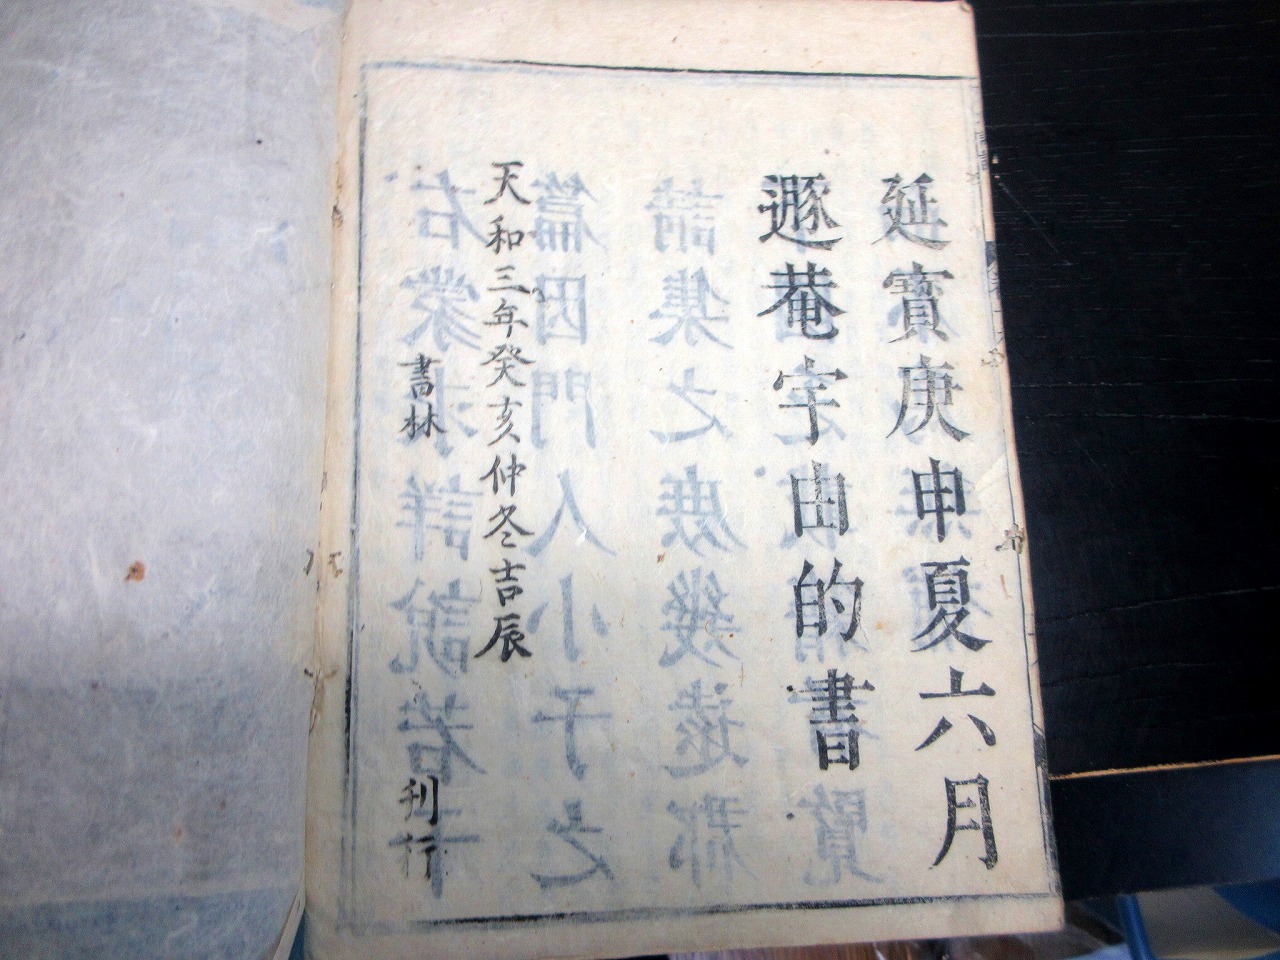 延寳庚申夏六月
遯菴宇由的書
天和三年癸亥仲冬吉辰
書林 刋行